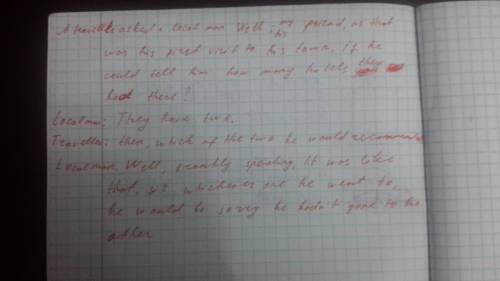 A traveller asked a local man Well, my friend, as that
his
was his first visit to his town, if he
could tell him how many hotels they
had there?
Local man: They have two.
Traveller: then, which of the two he would recommend
Local man. Well, frankly speaking, it was like
that, whichever one he went to
he would be sorry he hadn't gone to the
other